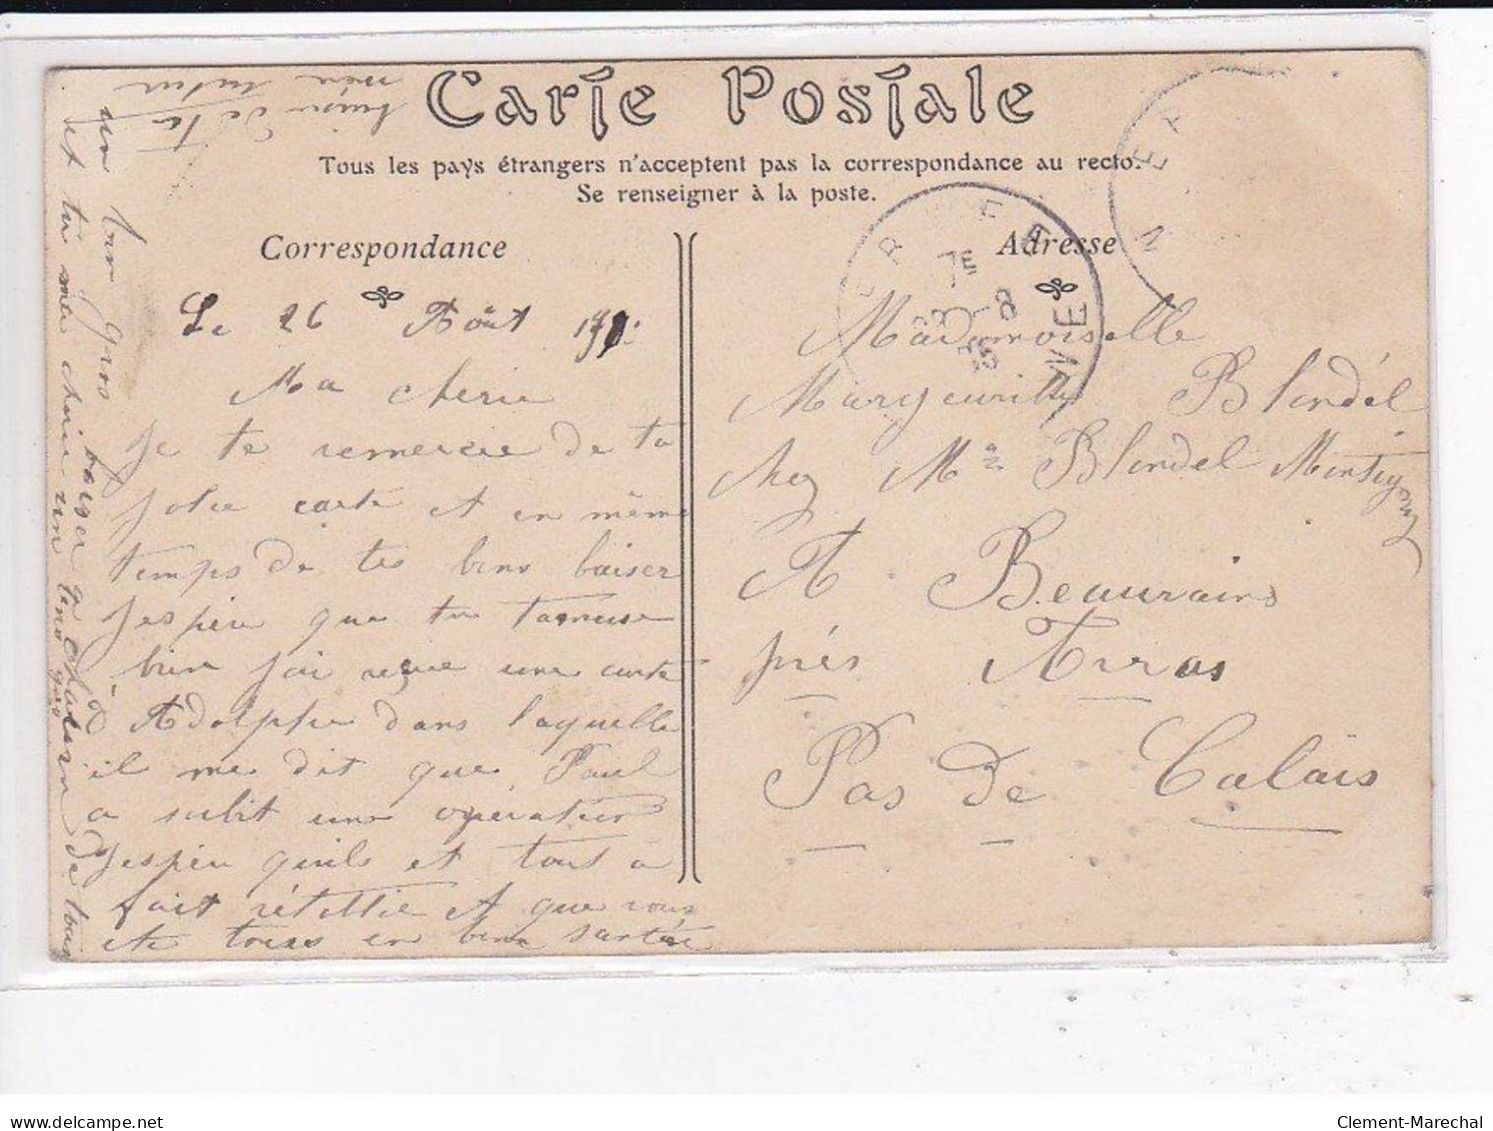 Carte Postale
Tous les pays étrangers n'acceptent pas la correspondance au recto.
Se renseigner à la poste.
Correspondance
Adresse
Le 26 Août
Ma cherie
Je te remercie de ta
jolie carte et en même
temps de tes bons baiser
Jespeu que tu tamuse
bien jai reçue une carte
d Adolphe dans laquelle
il me dit que Paul
a subit une opération
Jespeu quils et tout a
fait rétablie et que vous
ete tous en bone santée
un bon gros baisa a chacun de vous
et toi ma cherie un
baiser de ta
Mademoiselle
Margueritte Blondel
chez Mme Blondel Montigny
A Beaurains
près Arras
Pas de Calais
7E
Clement-Marechal
delcampe.net